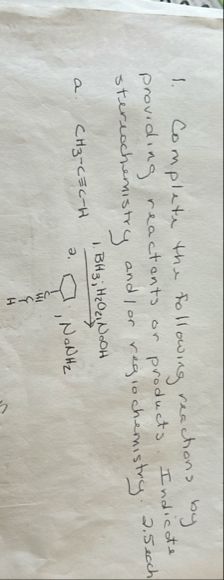 1. Complete the following reactions by
providing reactants or products. Indicate
stereochemistry and/or regiochemistry. 2.5 each
a. CH3-C≡C-H
1. BH3; H2O2, NaOH
2. , NaNH2
C
C
H